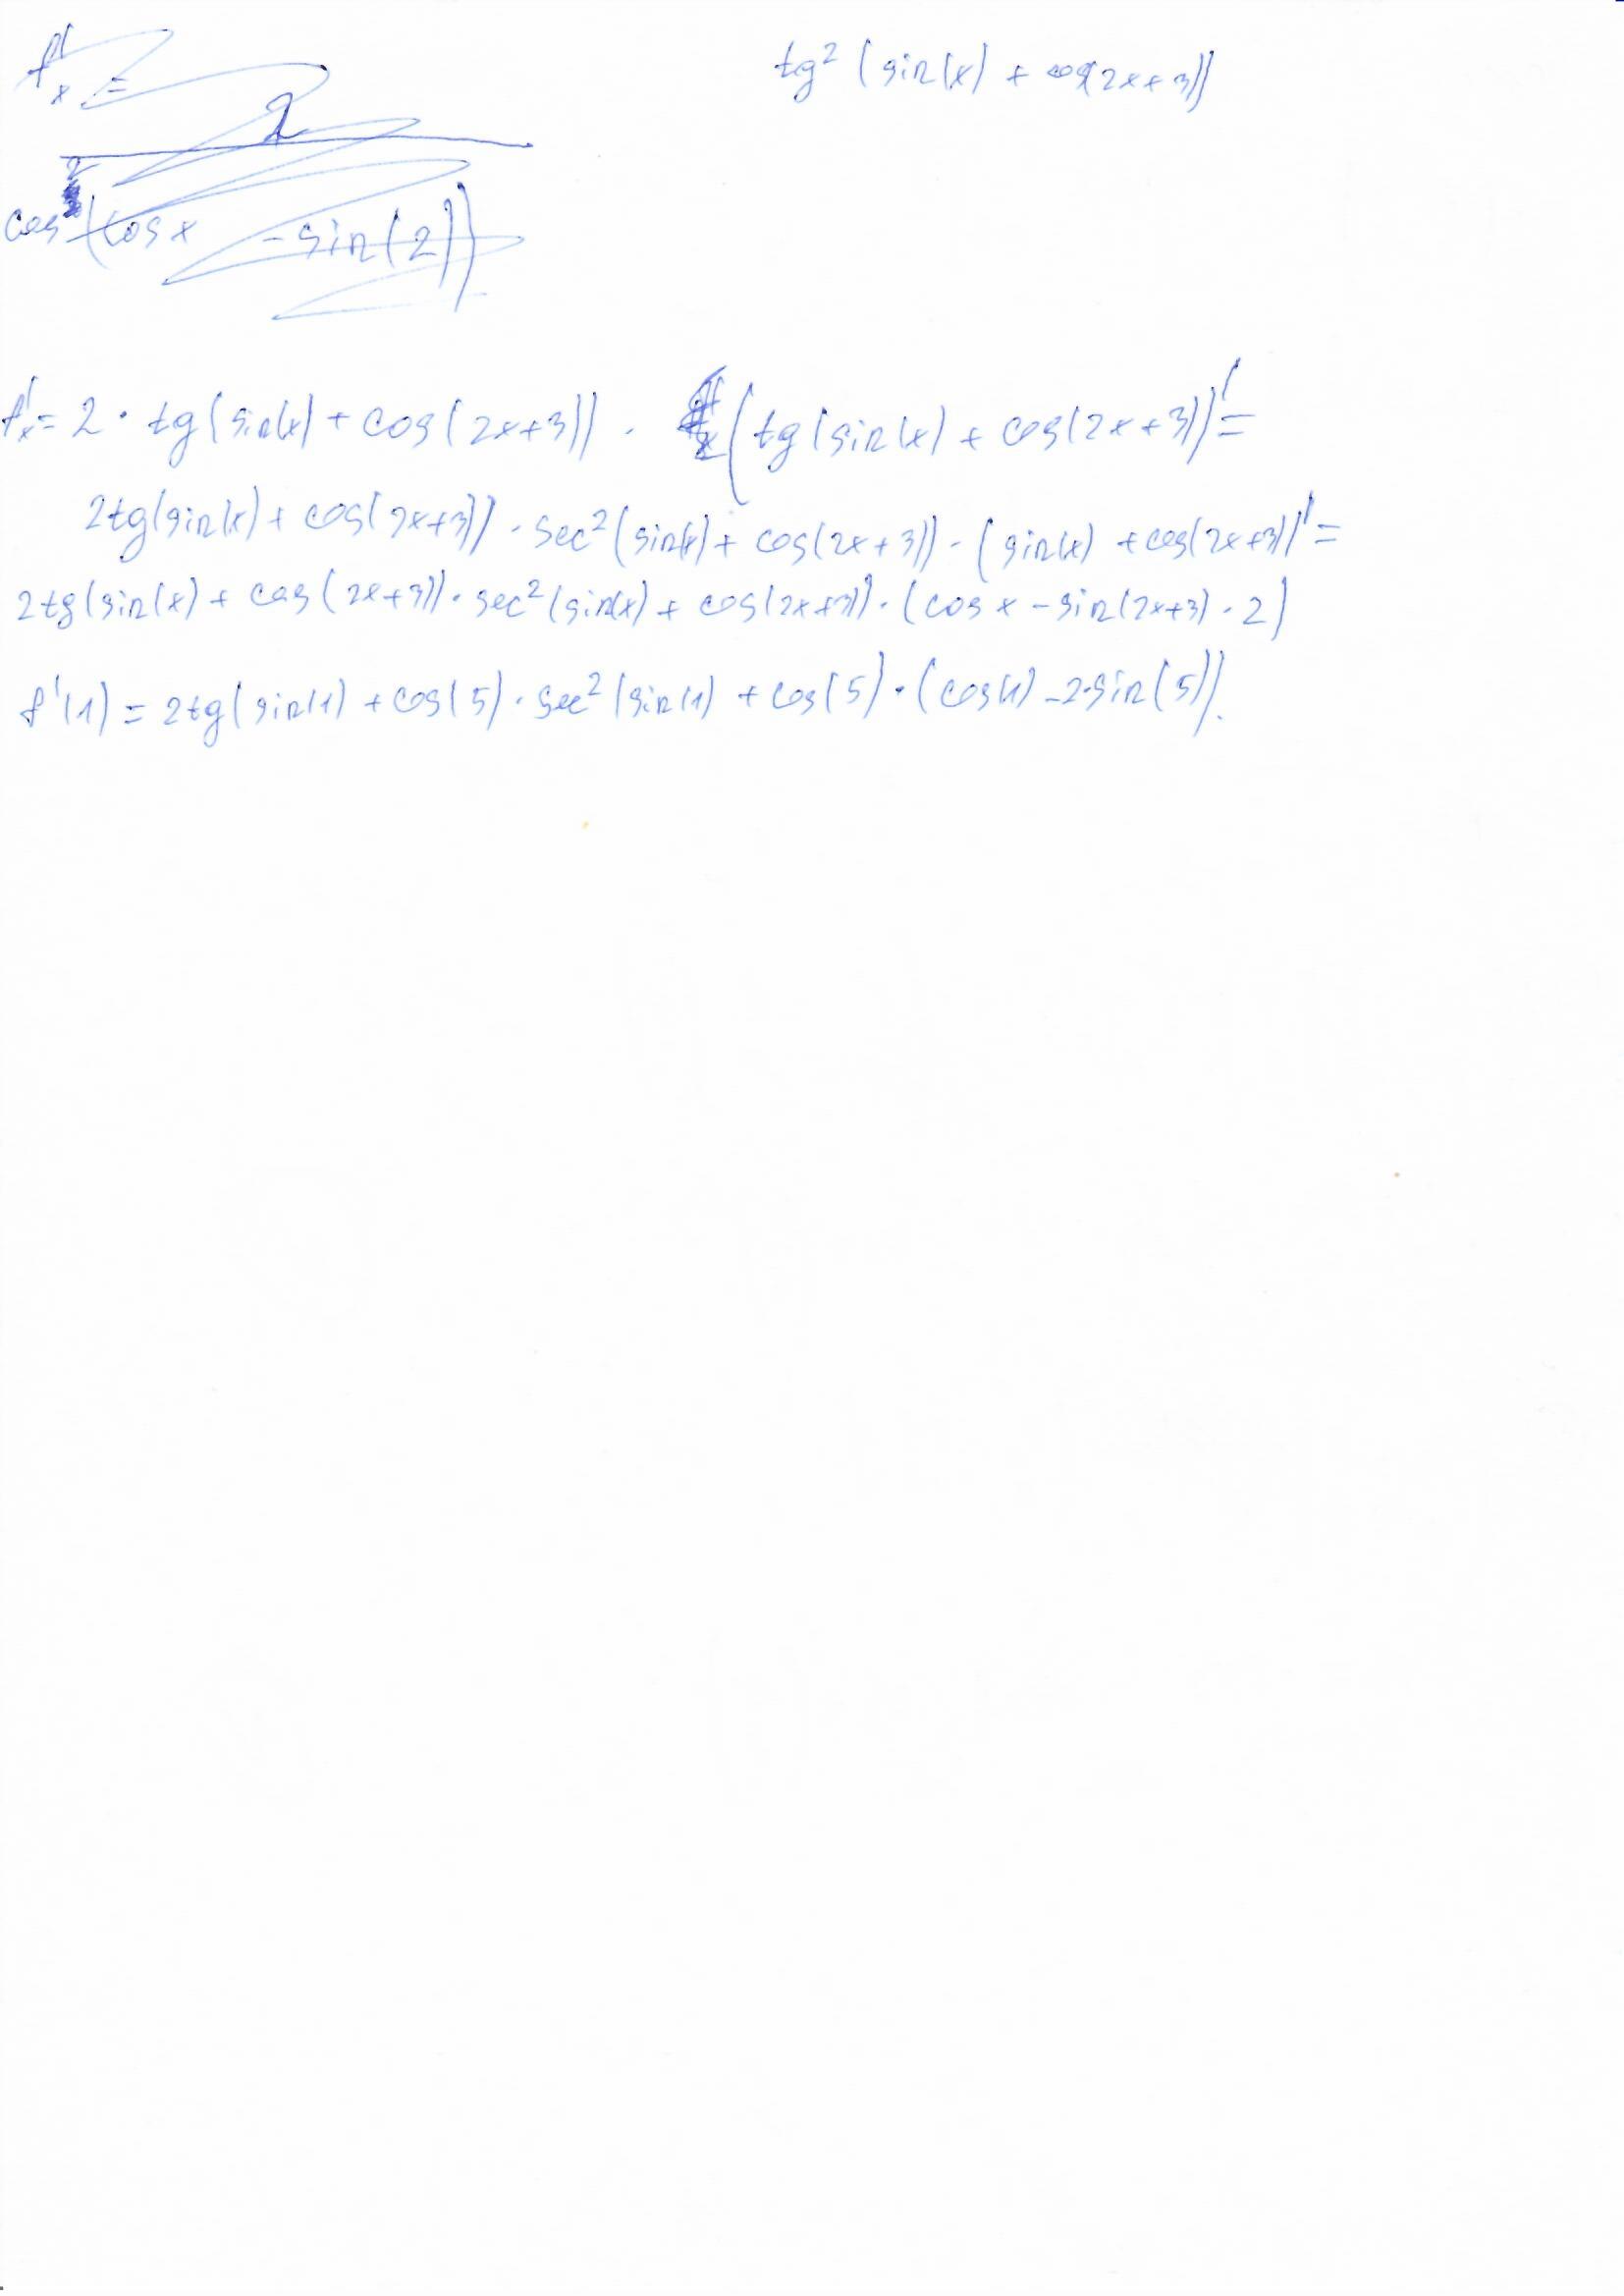 f'x =
tg² (sin(x) + cos(2x+3))
1
cos² (cos x - sin(2))
f'x = 2 · tg(sin(x) + cos(2x+3)) · (tg(sin(x) + cos(2x+3))' =
2tg(sin(x) + cos(2x+3)) · sec² (sin(x) + cos(2x+3)) · (sin(x) + cos(2x+3))' =
2tg(sin(x) + cos(2x+3)) · sec² (sin(x) + cos(2x+3)) · (cos x - sin(2x+3) · 2)
f'(1) = 2tg(sin(1) + cos(5) · sec² (sin(1) + cos(5) · (cos(1) - 2·sin(5)).